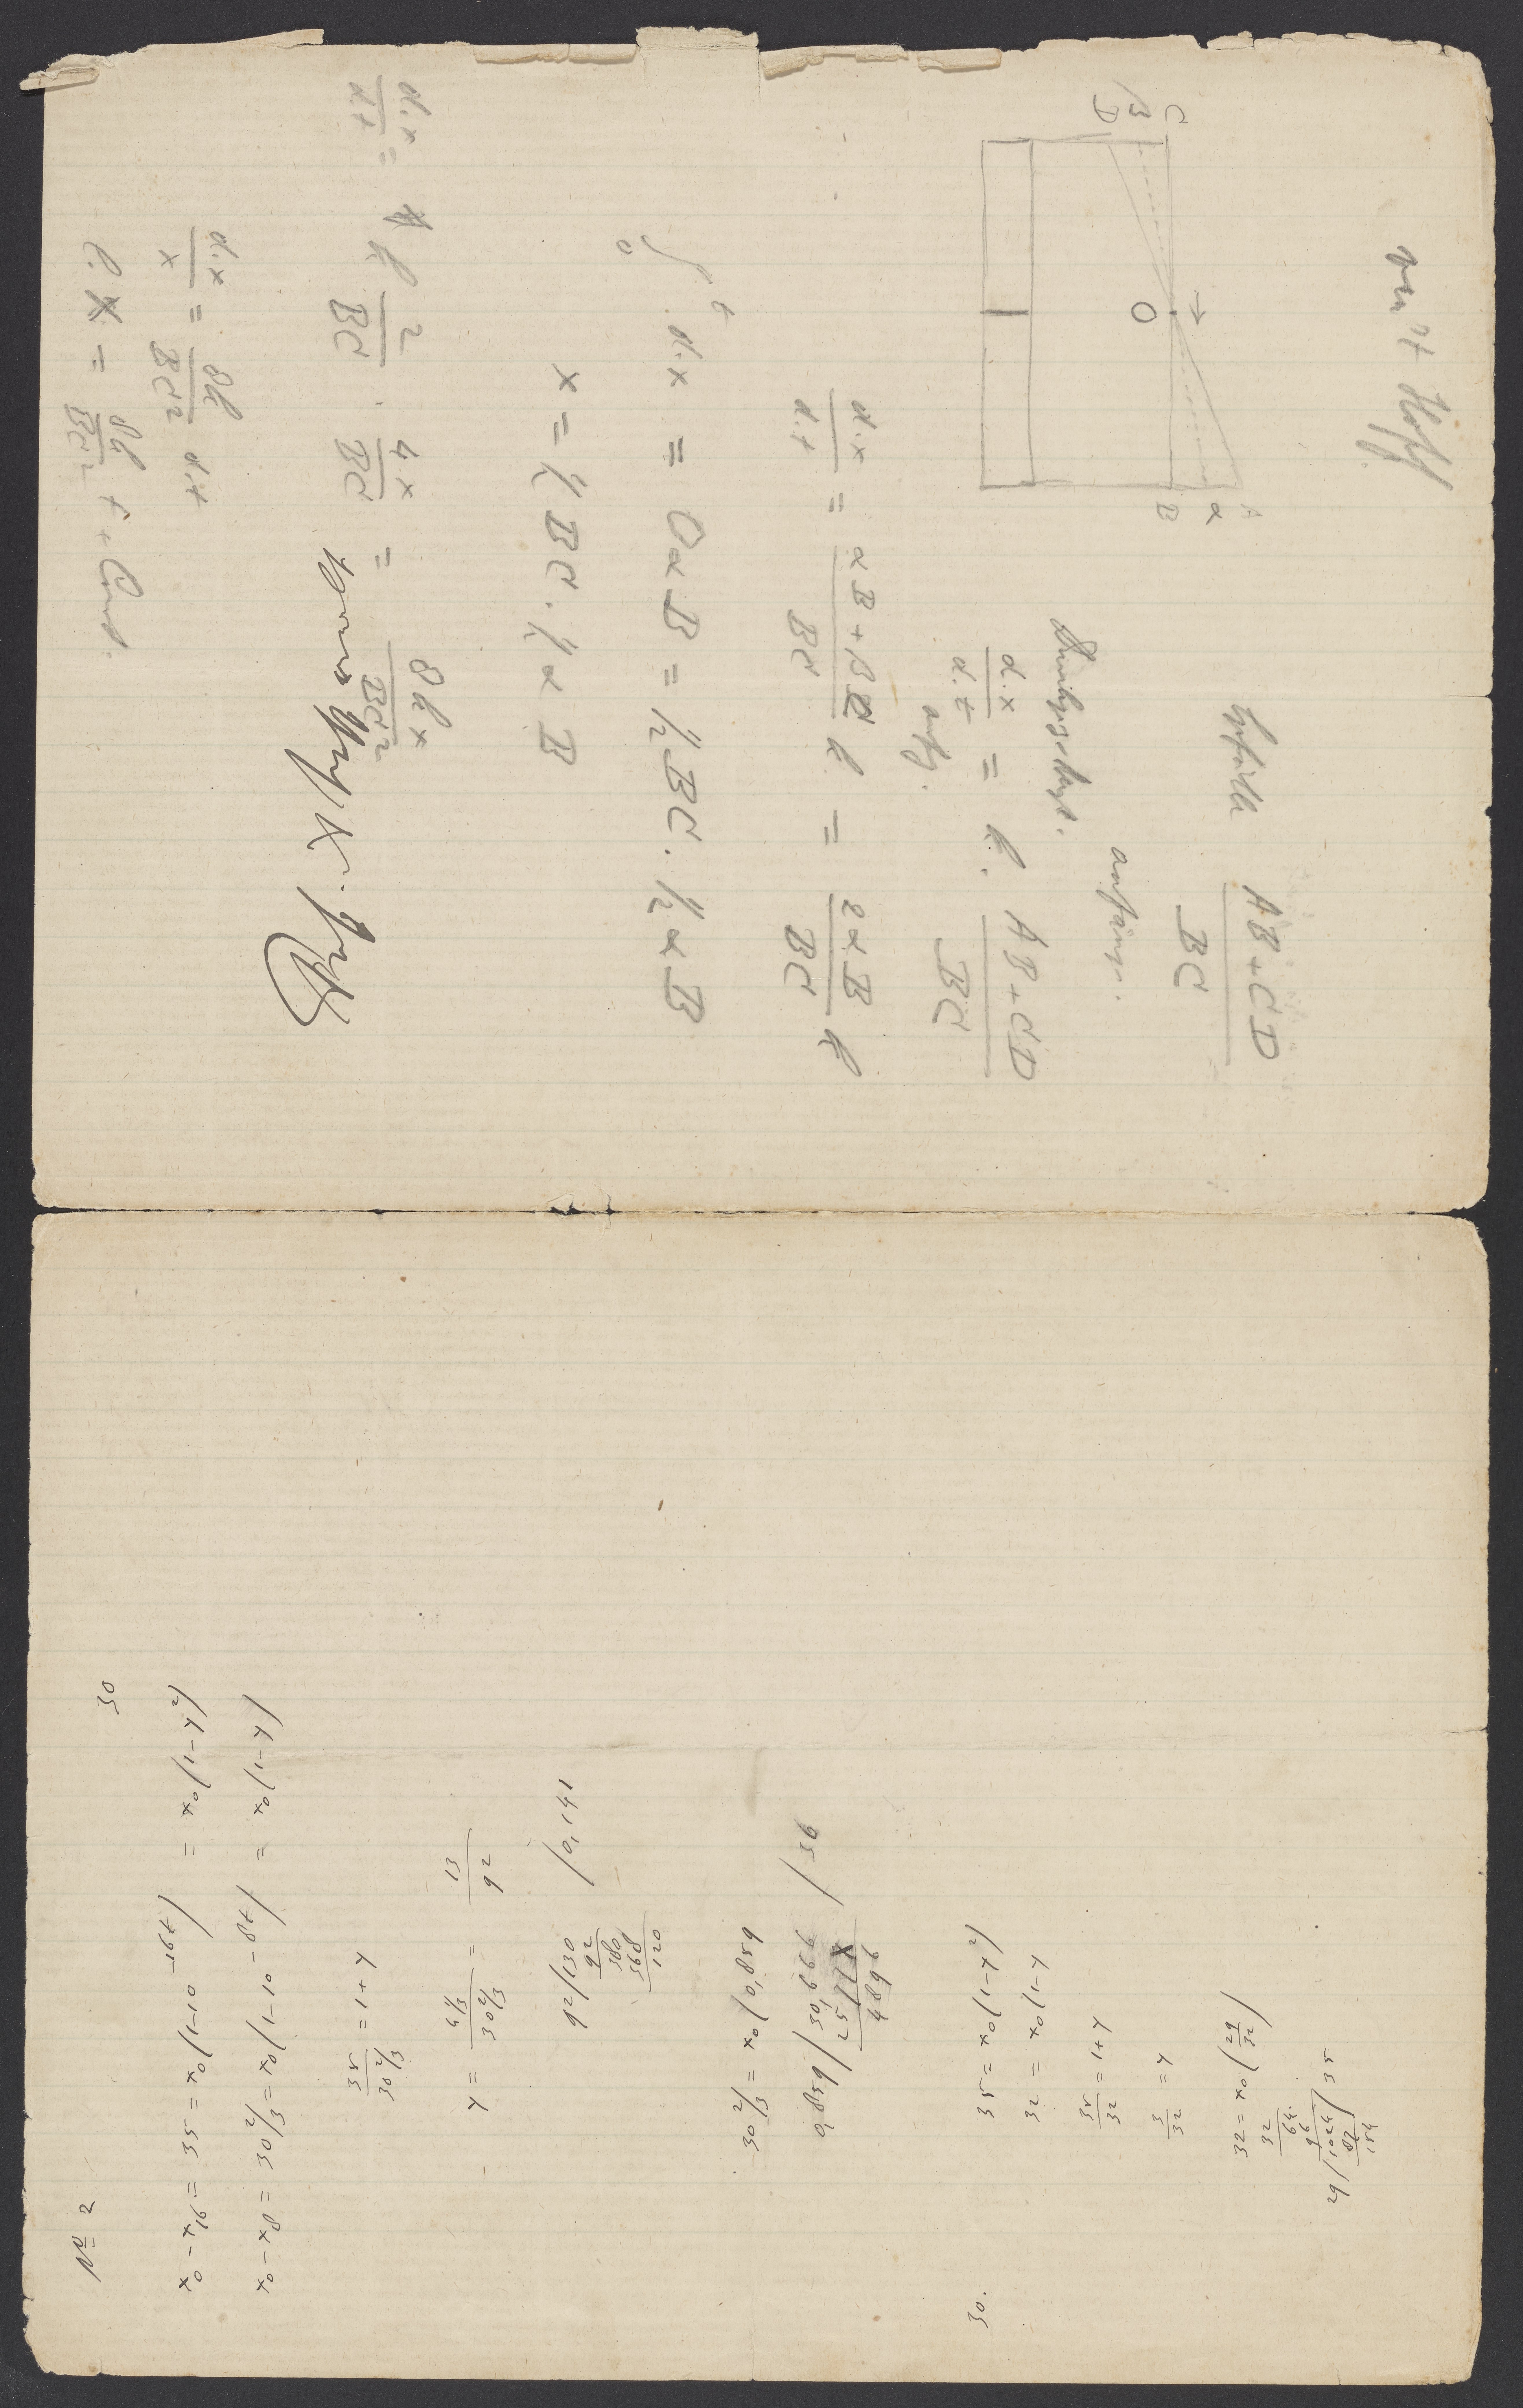 van't Hoff
A
α
B
O
C
β
D
Gefälle (AB + CD)/BC
anfangs.
dx/dt = k. (AB + CD)/BC
anfg.
dx/dt = (αB + βC)/BC k = 2αB/BC k
∫₀ᵗ dx = OαB = ½ BC. ½ αB
x = ½ BC. ½ αB
dx/dt = k 2/BC . 4x/BC = 8kx/BC²
dx/x = 8k/BC² dt
l. x = 8k/BC² t + Const.
No 2
30
x₀ - x₁₆ = 35 = x₀(1-10⁻¹⁶ᵗ) = x₀(1-y²)
x₀ - x₈ = 30⅔ = x₀(1-10⁻⁸ᵗ) = x₀(1-y)
35/30⅔ = 1+y
y = 4⅓/30⅔ = 13/92
92/130 /0,141
92
380
368
120
30⅔ = x₀(0,859
0,859/30,666 /36
4896
30.
35 = x₀(1-y²)
32 = x₀(1-y
35/32 = 1+y
3/32 = y
32 = x₀(29/32)
32
64
96
29/1024/35
87
154